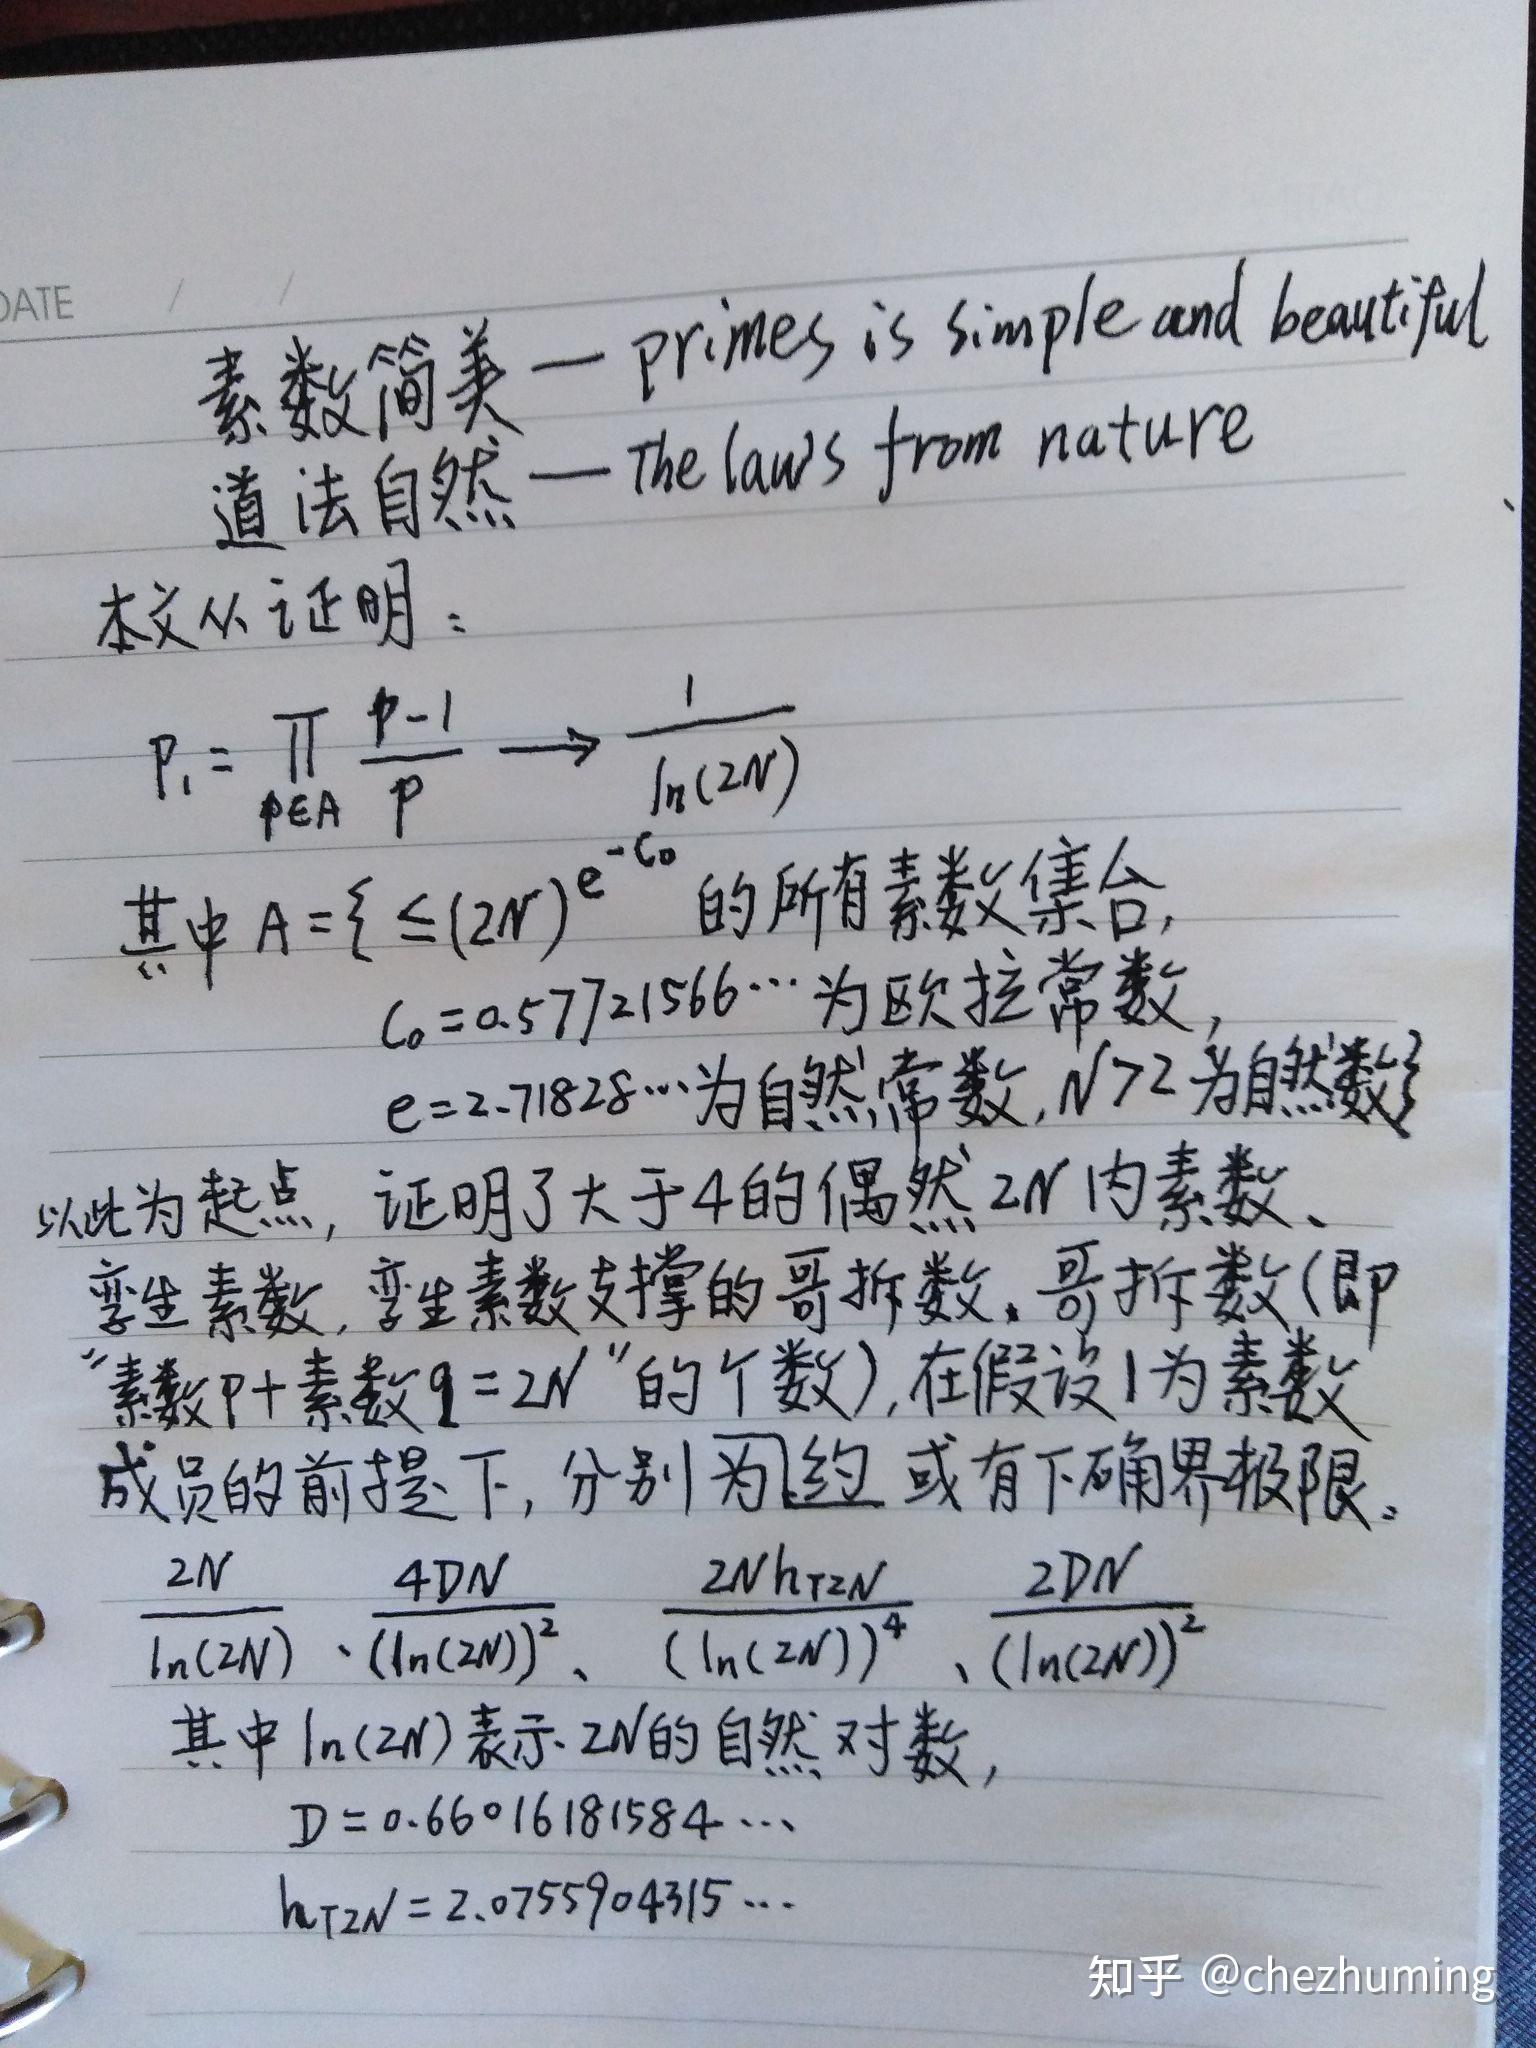 DATE / /
素数简美 — primes is simple and beautiful
道法自然 — The laws from nature
本文从证明:
P₁ = ∏_{p∈A} (p-1)/p → 1/ln(2N)
其中 A = { ≤(2N)^{e^{-C₀}} 的所有素数集合,
C₀=0.57721566… 为欧拉常数,
e=2.71828…为自然常数, N>2为自然数}
以此为起点, 证明了大于4的偶然2N内素数、
孪生素数, 孪生素数支撑的哥拆数、哥拆数(即
"素数p+素数q=2N"的个数), 在假设1为素数
成员的前提下, 分别为约或有下确界极限:
2N/ln(2N) 、 4DN/(ln(2N))² 、 2Nh_{T2N}/(ln(2N))⁴ 、 2DN/(ln(2N))²
其中 ln(2N)表示2N的自然对数,
D=0.66016181584…
h_{T2N}=2.0755904315…
知乎 @chezhuming